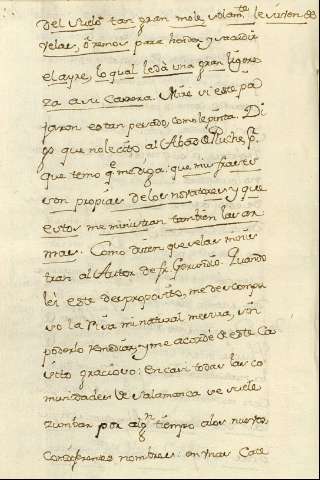 del suelo tan gran mole, solamte. le sirven de
velas, ò remos para hender, y sacudir
el ayre, lo qual le dà una gran ligere
za a su Carrera. Mire si este pa
jaron es tan pesado, como le pinta. Di
go que no le cito al Abad de Pluche, pr.
que temo qe me diga: que mis frases
son propias de los novatores, y que
estos me ministran tambien las ar
mas. Como dicen que se las minis
tran al Autor de fr. Gerundio. Quando
lei este desproposito, me descompu
so la risa mi natural mesura, sin
poderlo remediar, y me acordè de este ca
sito gracioso: En casi todas las co
munidades de Salamanca se suele
zumbar por algn tiempo a los nuevos,
con diferentes nombres: en unas Case